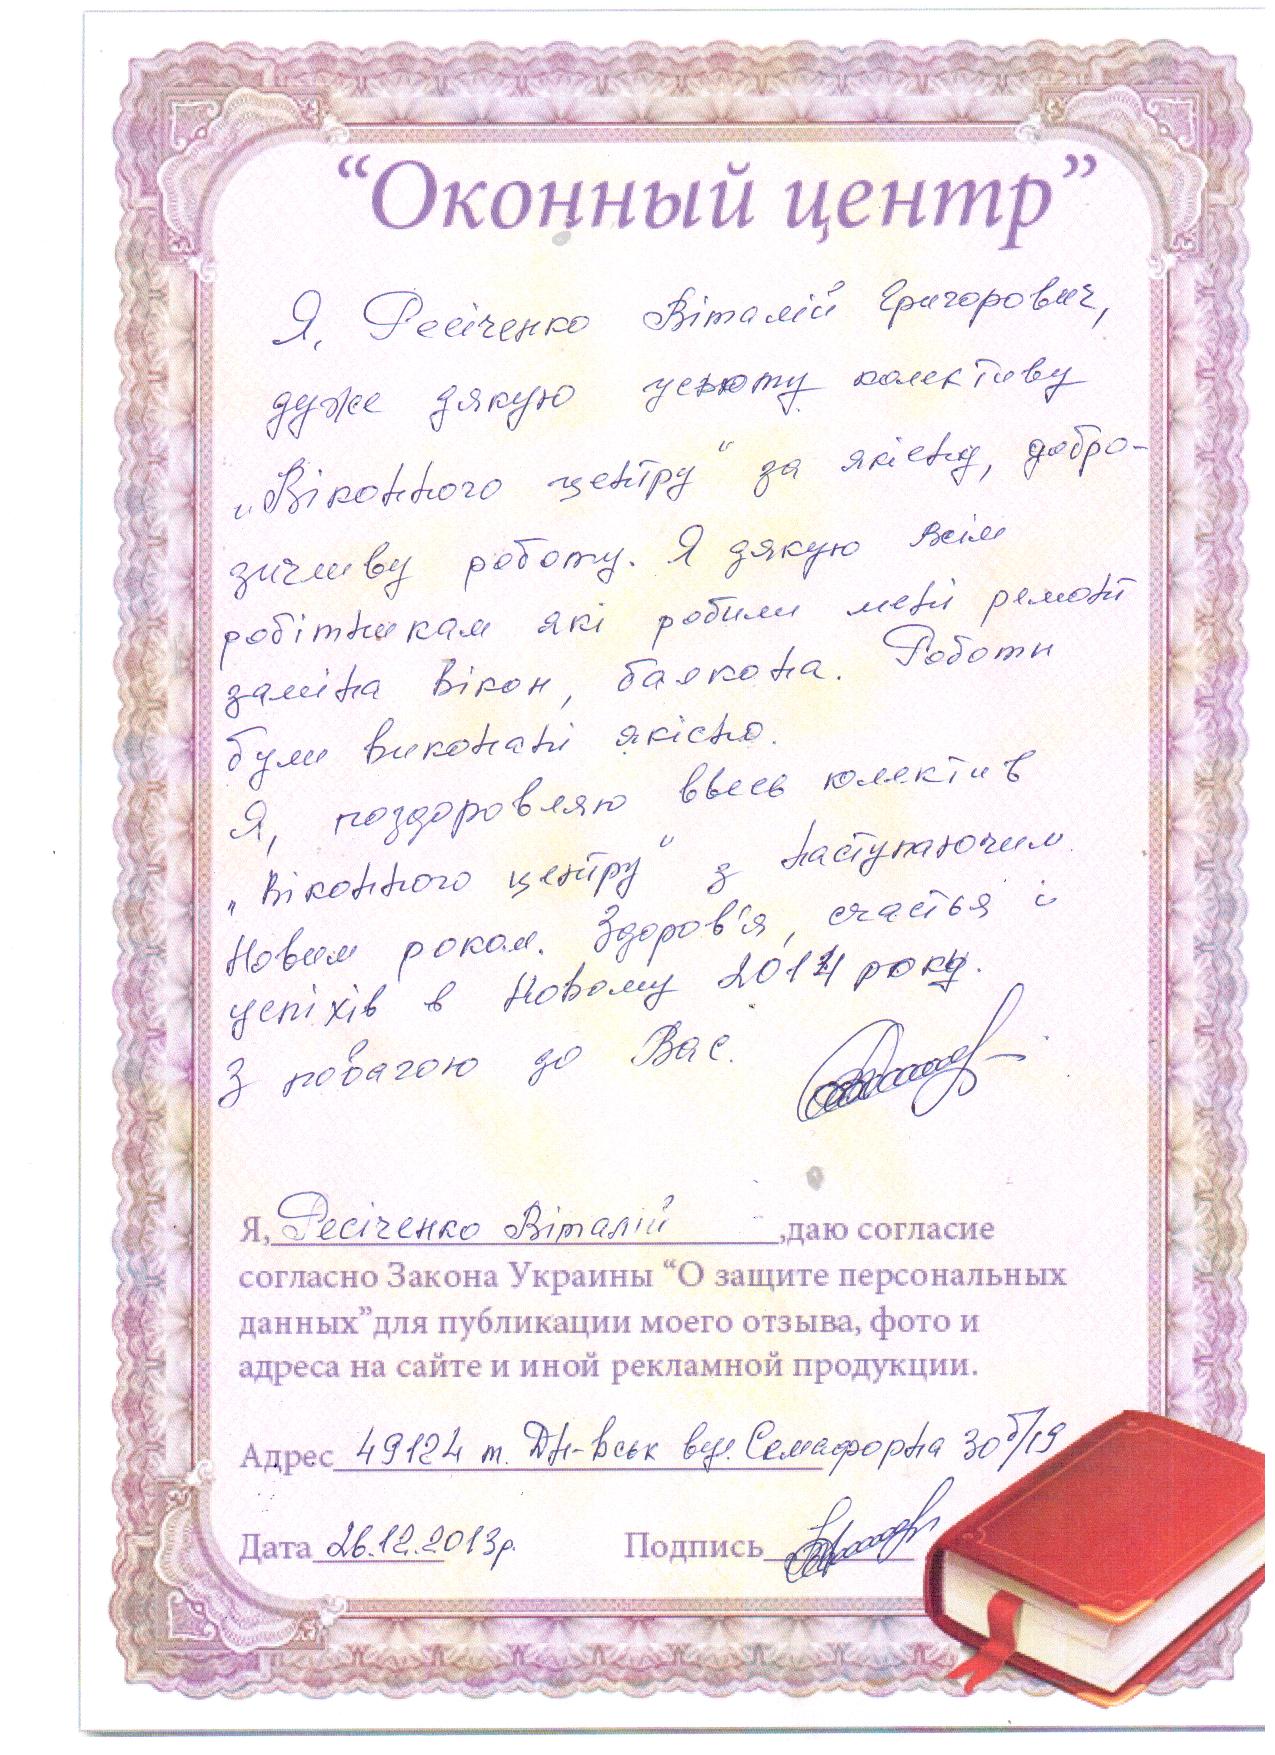 “Оконный центр”
Я, Ресіченко Віталій Григорович,
дуже дякую усьому колективу
„Віконного центру“ за якісну, добро-
зичливу роботу. Я дякую всім
робітникам які робили мені ремонт
заміна вікон, балкона. Роботи
були виконані якісно.
Я, поздоровляю ввесь колектив
„Віконного центру“ з наступаючим
Новим роком. Здоров'я, счастья і
успіхів в Новому 2014 році.
З повагою до Вас.
Я, Ресіченко Віталій ,даю согласие
согласно Закона Украины “О защите персональных
данных”для публикации моего отзыва, фото и
адреса на сайте и иной рекламной продукции.
Адрес 49124 м. Дн-вськ вул. Семафорна 30б/19
Дата 26.12.2013р. Подпись